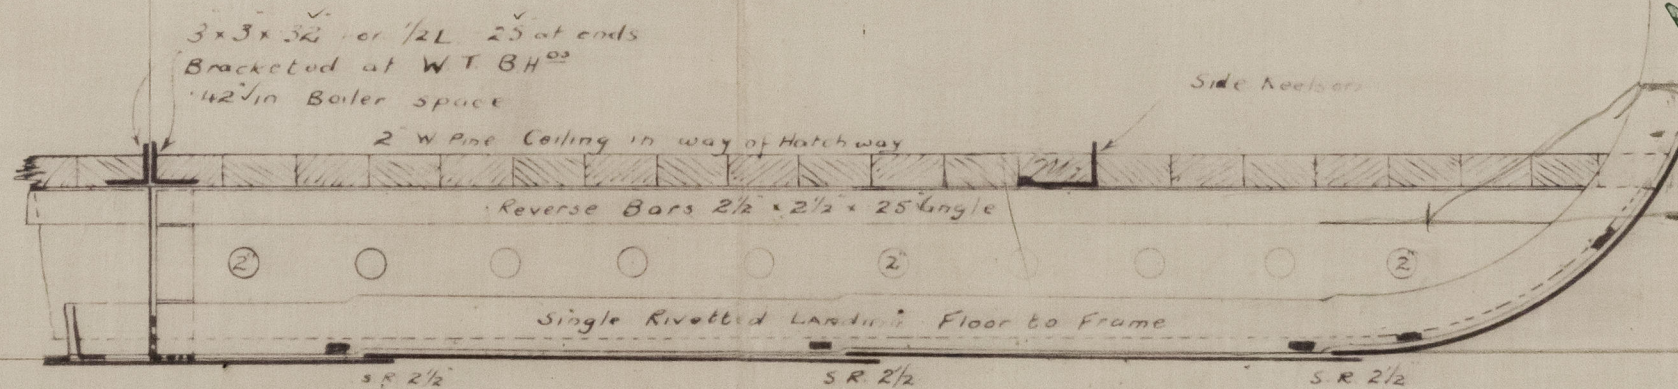 3" x 3" x 32 or 1/2 L 25 at ends
Bracketed at W.T. BHds
.42 in Boiler space
2" W Pine Ceiling in way of Hatchway
Side Keelson
Reverse Bars 2½ x 2½ x 25 Angle
2" 2" 2"
Single Rivetted Landing Floor to Frame
S.R. 2½ S.R. 2½ S.R. 2½